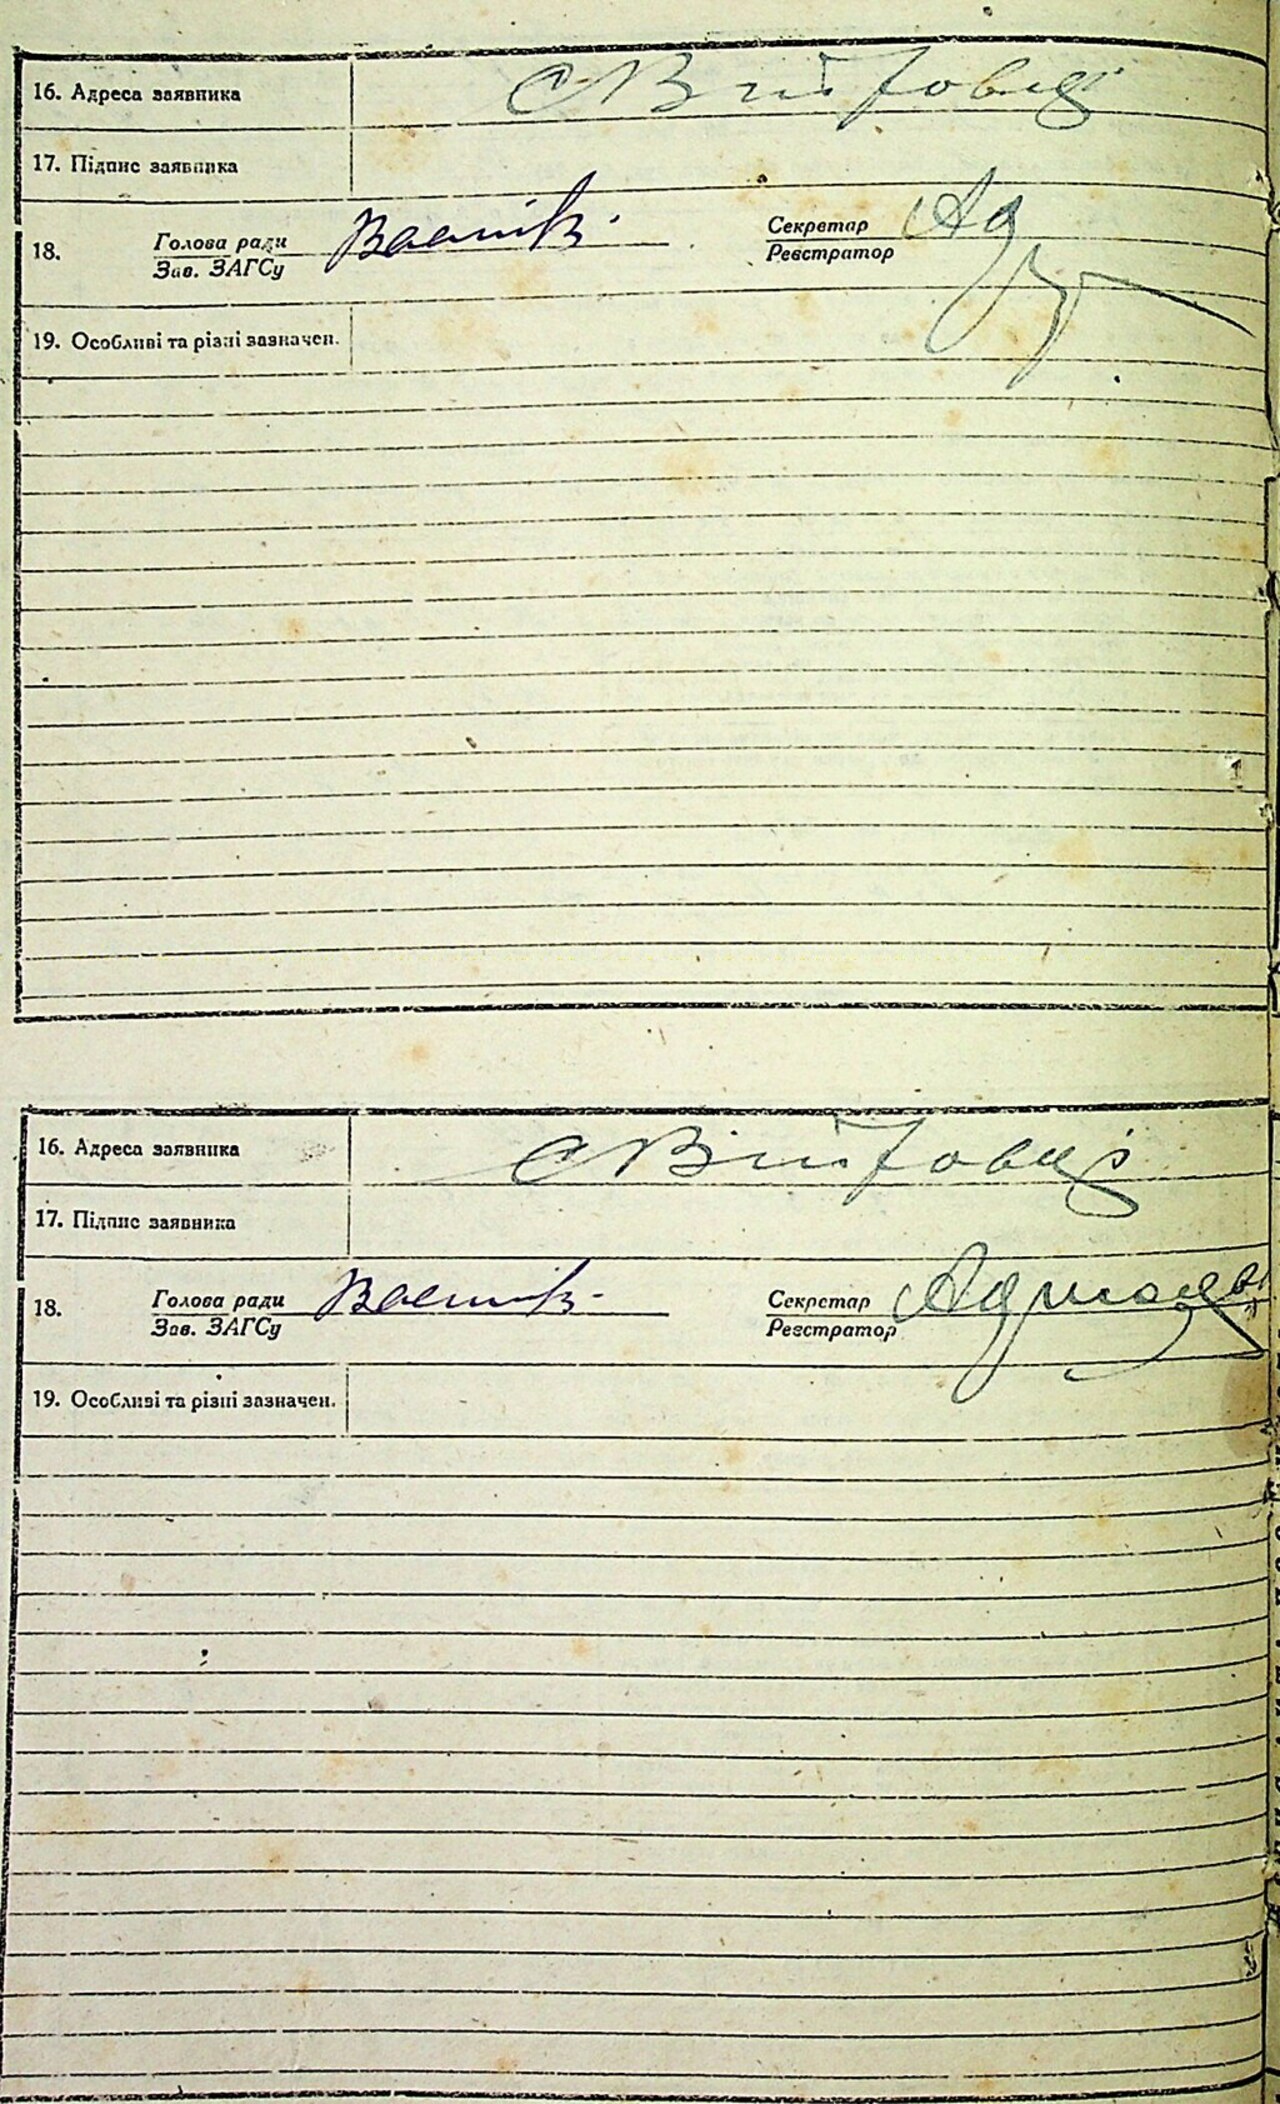 16. Адреса заявника с Війтовці
17. Підпис заявника
18. Голова ради Секретар
Зав. ЗАГСу Реєстратор
19. Особливі та різні зазначен.
16. Адреса заявника с Війтовці
17. Підпис заявника
18. Голова ради Секретар
Зав. ЗАГСу Реєстратор
19. Особливі та різні зазначен.